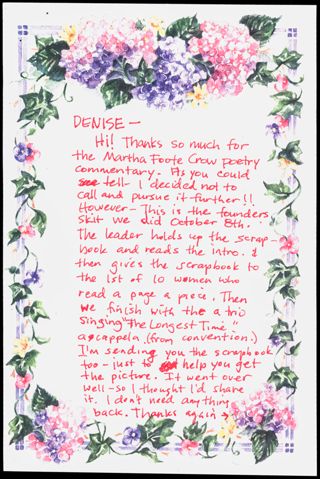 DENISE —
Hi! Thanks so much for
the Martha Foote Crow poetry
commentary. As you could
tell - I decided not to
call and pursue it further!!
However - This is the founders
skit we did October 8th.
The leader holds up the scrap-
book and reads the intro. &
then gives the scrapbook to
the 1st of 10 women who
read a page a piece. Then
we finish with the a trio
singing "The Longest Time"
accapella. (from convention.)
I'm sending you the scrapbook
too - just to help you get
the picture. It went over
well - so I thought I'd share
it. I don't need anything
back. Thanks again →